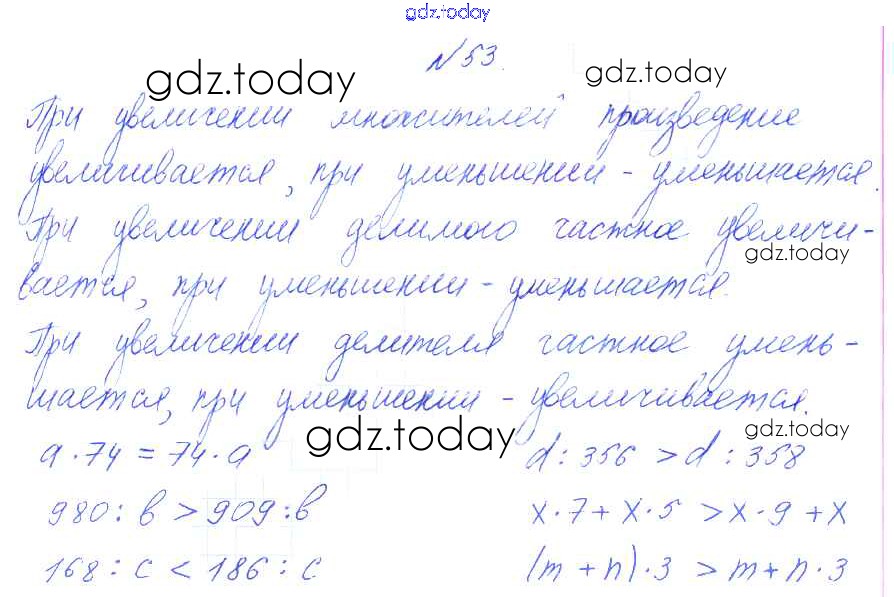 gdz.today
№53.
gdz.today gdz.today
При увеличении множителей произведение
увеличивается, при уменьшении - уменьшается.
При увеличении делимого частное увеличи-
gdz.today
вается, при уменьшении - уменьшается.
При увеличении делителя частное умень-
шается, при уменьшении - увеличивается.
gdz.today gdz.today
a · 74 = 74 · a d : 356 > d : 358
980 : b > 909 : b x · 7 + x · 5 > x · 9 + x
168 : c < 186 : c (m + n) · 3 > m + n · 3